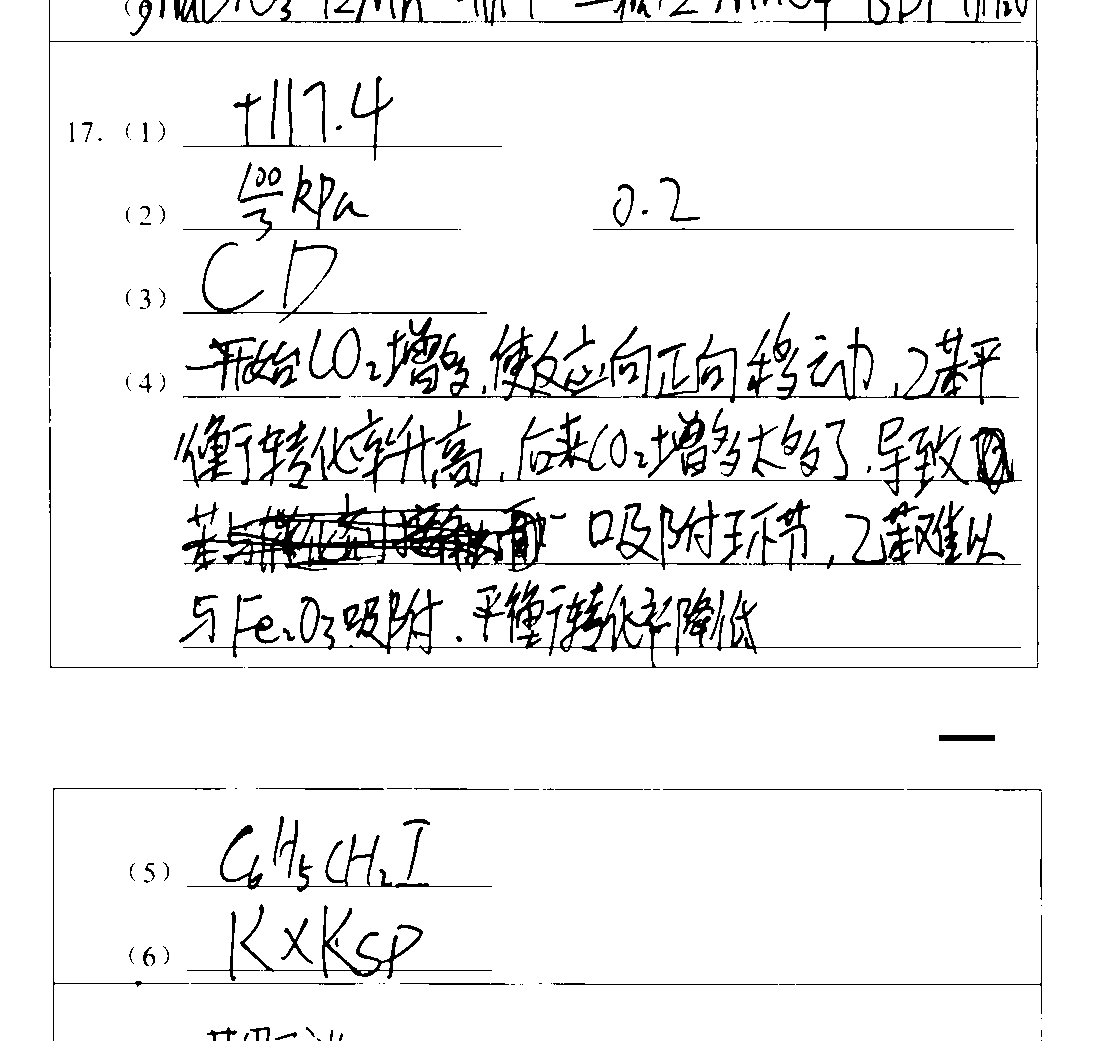 17. (1) +117.4
(2) 100/3 kPa 0.2
(3) CD
(4) 一开始CO₂增多,使反应向正向移动,乙苯平
衡转化率升高,后来CO₂增多太多了,导致
吸附环节,乙苯难以
与Fe₂O₃吸附.平衡转化率降低
(5) C₆H₅CH₂I
(6) K×KSP